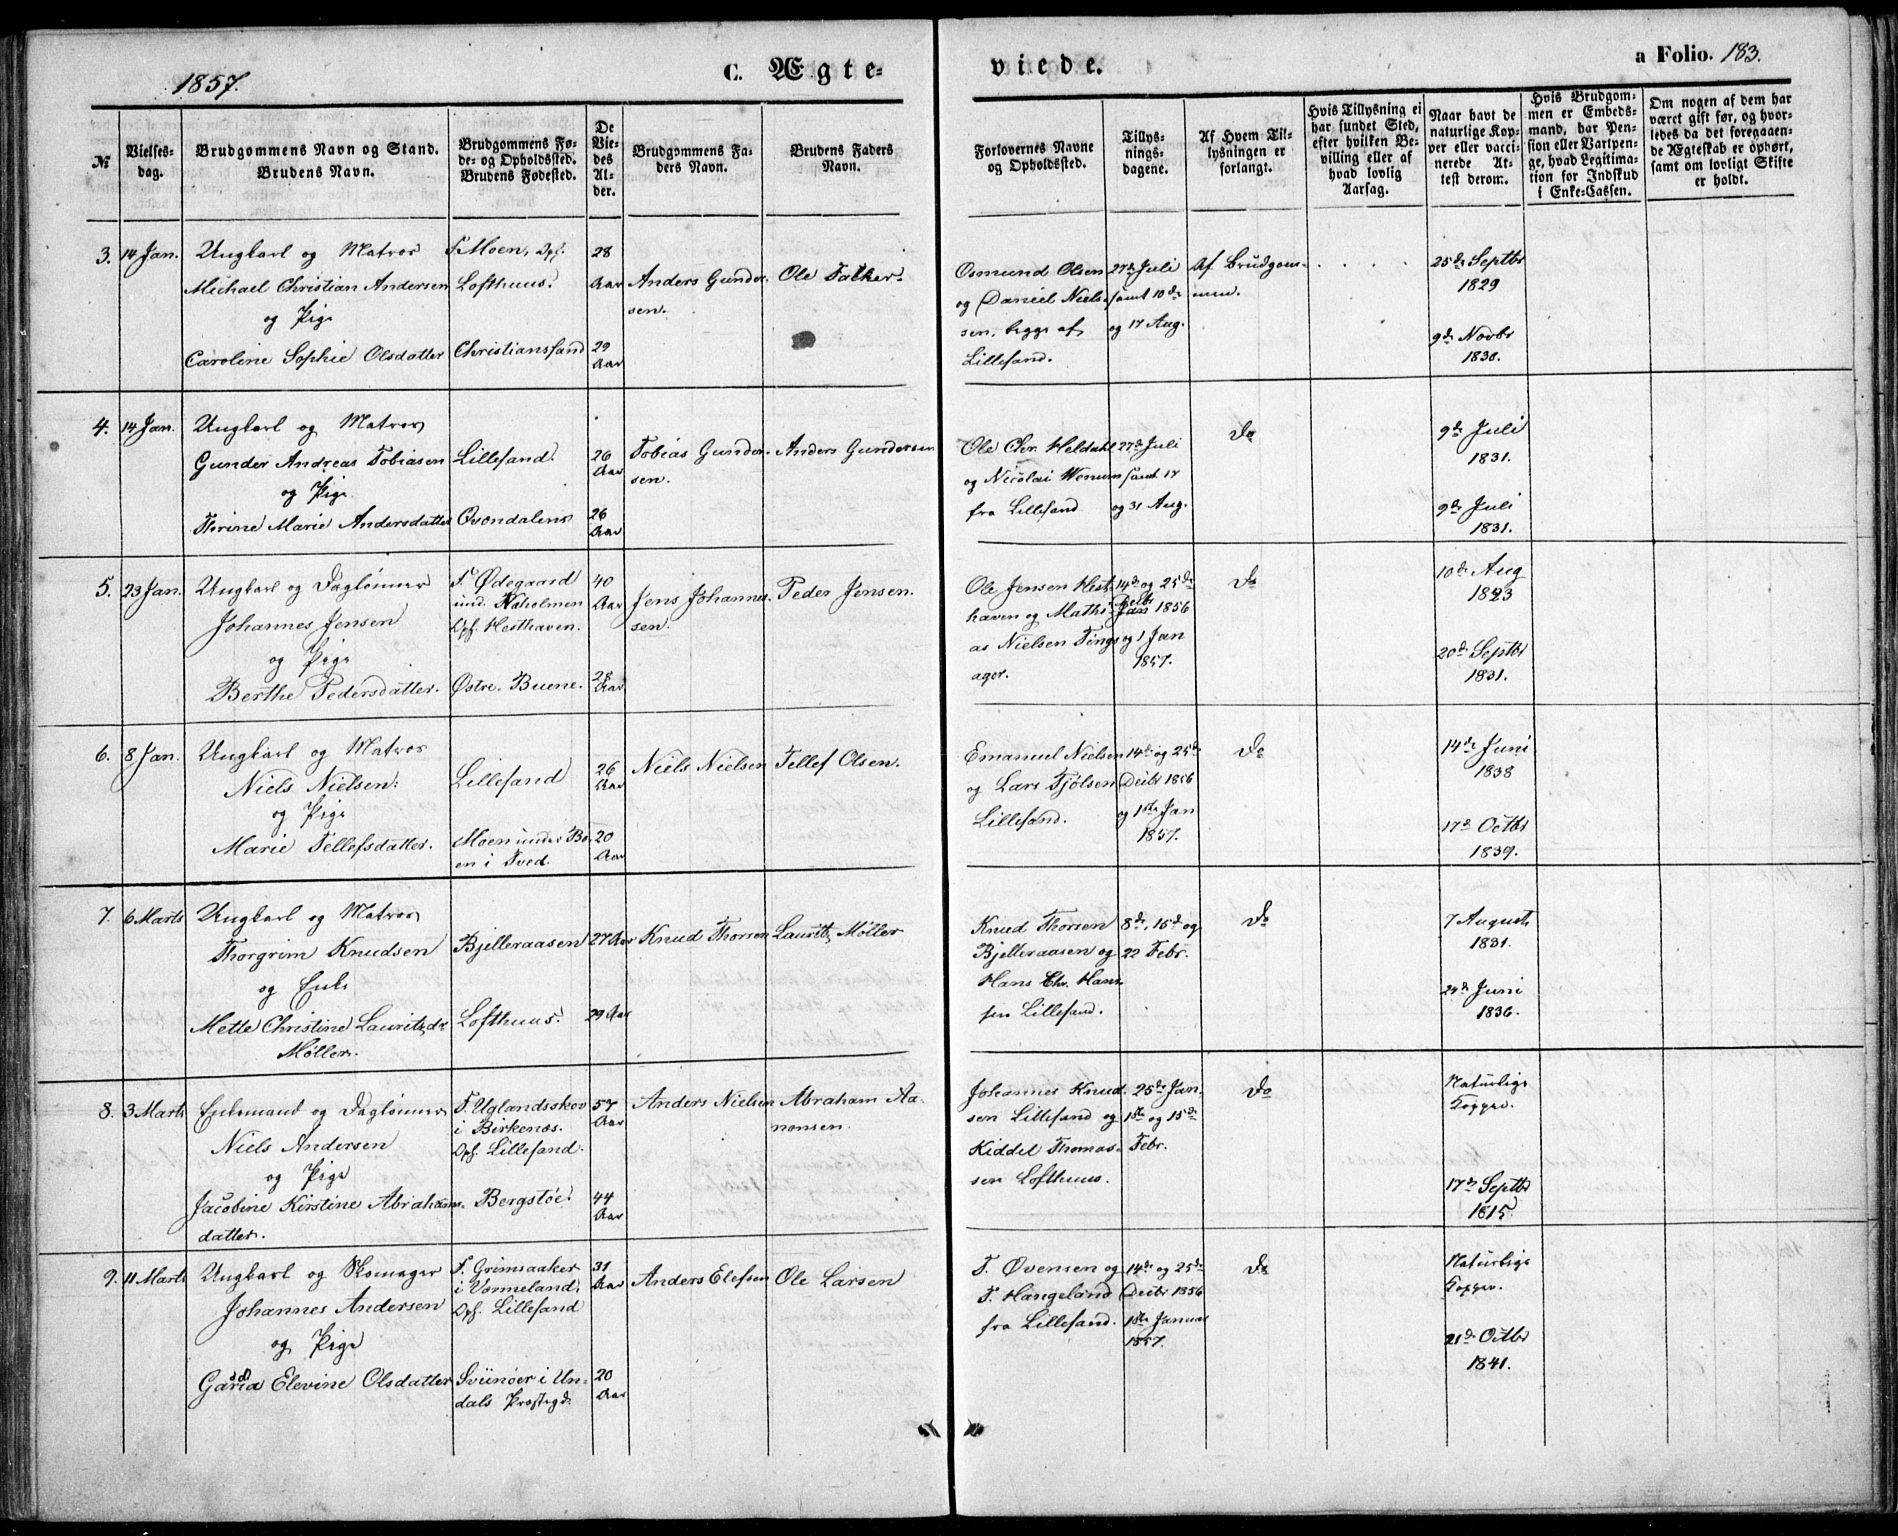 1857.
C. Ægte-
viede.
a Folio. 183.
№
Vielses-
dag.
Brudgommens Navn og Stand.
Brudens Navn.
Brudgommens Fø-
de- og Opholdssted.
Brudens Fødested.
De
Vie-
des
Al-
der.
Brudgommens Fa-
ders Navn.
Brudens Faders
Navn.
Forlovernes Navne
og Opholdssted.
Tillys-
nings-
dagene.
Af Hvem Til-
lysningen er
forlangt.
Hvis Tillysning ei
har fundet Sted,
efter hvilken Be-
villing eller af
hvad lovlig
Aarsag.
Naar havt de
naturlige Kop-
per eller vacci-
nerede At-
test derom.
Hvis Brudgom-
men er Embeds-
mand, har Pen-
sion eller Vartpen-
ge, hvad Legitima-
tion for Indskud
i Enke-Cassen.
Om nogen af dem har
været gift før, og hvor-
ledes da det foregaaen-
de Ægteskab er ophørt,
samt om lovligt Skifte
er holdt.
3. 14 Jan.
Ungkarl og Matros
Michael Christian Andersen
og Pige
Caroline Sophie Olsdatter
F. Moen, Opf.
Lofthuus.
Christianssand
28
Aar
29
Aar
Anders Gunder-
sen.
Ole Falker-
Osmund Olsen
og Daniel Niels-
sen, begge af
Lillesand.
27de Juli
samt 10de
og 17 Aug.
Af Brudgom-
men.
25de Septbr
1829
9de Novbr
1830.
4. 14 Jan.
Ungkarl og Matros
Gunder Andreas Tobiasen
og Pige
Thrine Marie Andersdatter
Lillesand.
Ovondalens
26
Aar
26
Aar
Tobias Gunder-
sen.
Anders Gundersen
Ole Chr. Heldahl
og Nicolai Wenum
fra Lillesand
27de Juli
samt 17
og 31 Aug.
Do
9de Juli
1831.
9de Juli
1831.
5. 23 Jan.
Ungkarl og Daglønner
Johannes Jensen
og Pige
Berthe Pedersdatter.
F. Ødegaard
und. Naholmen
Opf. Hesthaven.
Østre. Buene.
40
Aar
28
Aar
Jens Johannes-
sen.
Peder Jensen.
Ole Jensen Hest-
haven og Mathi-
as Nielsen Tings-
ager.
14de og 25de
Decbr
Jan 1856
og 1 Jan
1857.
Do
10de Aug
1823
20de Septbr
1831.
6. 8 Jan.
Ungkarl og Matros
Niels Nielsen.
og Pige
Marie Tellefsdatter.
Lillesand
Moen under Bo-
en i Tved.
26
Aar
20
Aar
Niels Nielsen
Tellef Olsen.
Emanuel Nielsen
og Lars Tjølsen
Lillesand.
14de og 25de
Decbr 1856
og 1ste Jan
1857.
Do
14de Juni
1838
17de Octbr
1839.
7. 6 Marts
Ungkarl og Matros
Thorgrim Knudsen
og Enke
Mette Christine Lauritzdr
Møller.
Bjelleraasen
Lofthuus.
27 Aar
29 Aar
Knud Thorsen
Lauritz Møller
Knud Thorsen
Bjelleraasen og
Hans Chr. Han-
sen Lillesand.
8de, 15de og
22 Febr.
Do
7 August
1831.
24de Juni
1836.
8. 3 Marts
Enkemand og Daglønner
Niels Andersen
og Pige
Jacobine Kirstine Abrahams-
datter.
F. Uglandsskov
i Birkenæs.
Opf. Lillesand.
Bergstøe.
57
Aar
44
Aar
Anders Nielsen
Abraham Aa-
nonsen.
Johannes Knud-
sen Lillesand og
Kiddel Thomas-
sen Lofthuus.
25de Jan.
1ste og 15de
Febr.
Do
Naturlige
Kopper.
17de Septbr
1815.
9. 11 Marts
Ungkarl og Skomager
Johannes Andersen
og Pige
Elevine Olsdatter
F. Grimsaaker
i Vonneland,
Opf. Lillesand
Svinøer i Un-
dals Præstegd.
31
Aar
20
Aar
Anders Elefsen
Ole Larsen
T. Øvensen og
T. Hangeland
fra Lillesand.
14de og 25de
Decbr 1856
1ste Januar
1857.
Do
Naturlige
Kopper.
21de Octbr
1841.